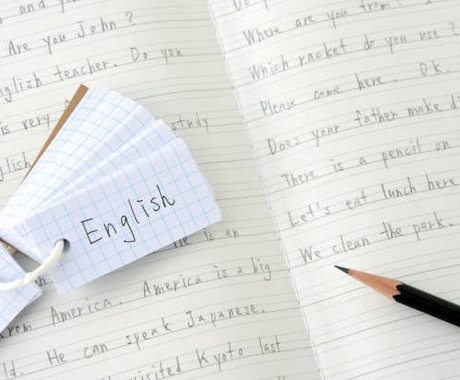 and you
Are you John ?
English teacher. Do you
is very
study
English
English
He is an
from America. America is a big
He can speak Japanese.
visited Kyoto last
Do
Where are you from ?
Which racket do you use ?
Please come here. OK.
Does your father make
There is a pencil on
Let's eat lunch here
We clean the park.